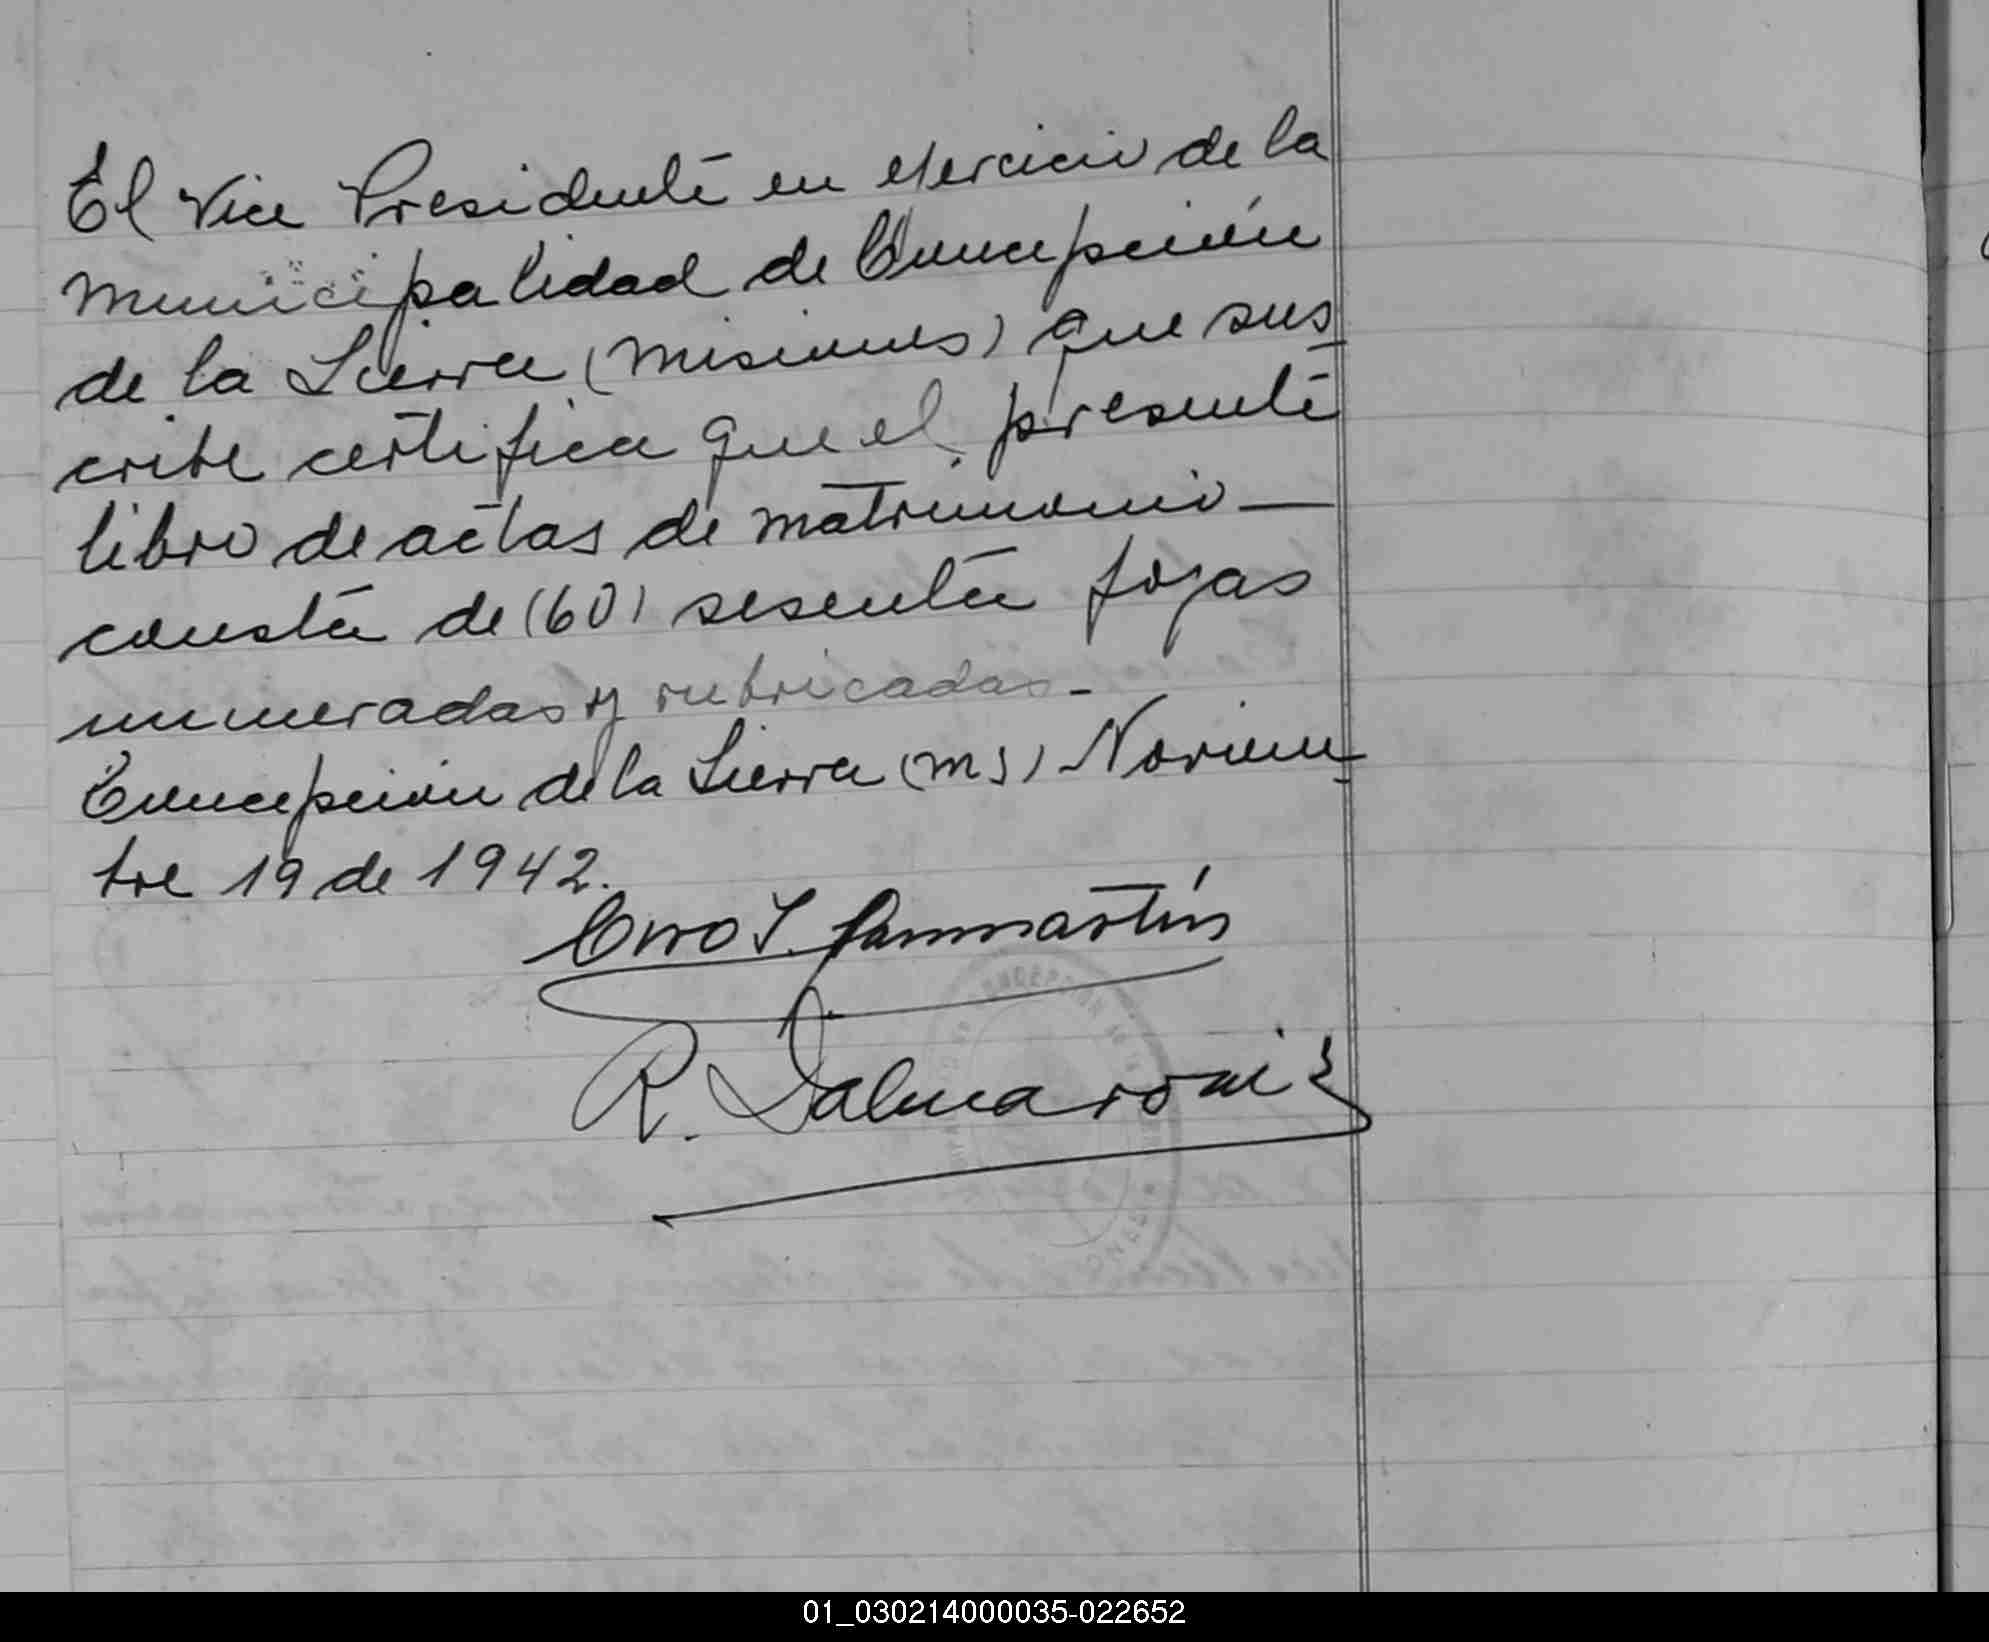 El Vice Presidente en ejercicio de la
Municipalidad de Concepción
de la Sierra (Misiones) que sus
cribe certifica que el presente
libro de actas de matrimonio —
consta de (60) sesenta fojas
numeradas y rubricadas -
Concepción de la Sierra (Ms) Noviem
bre 19 de 1942.
Ciro T. Sanmartín
R. Dalmaroni
01_030214000035-022652